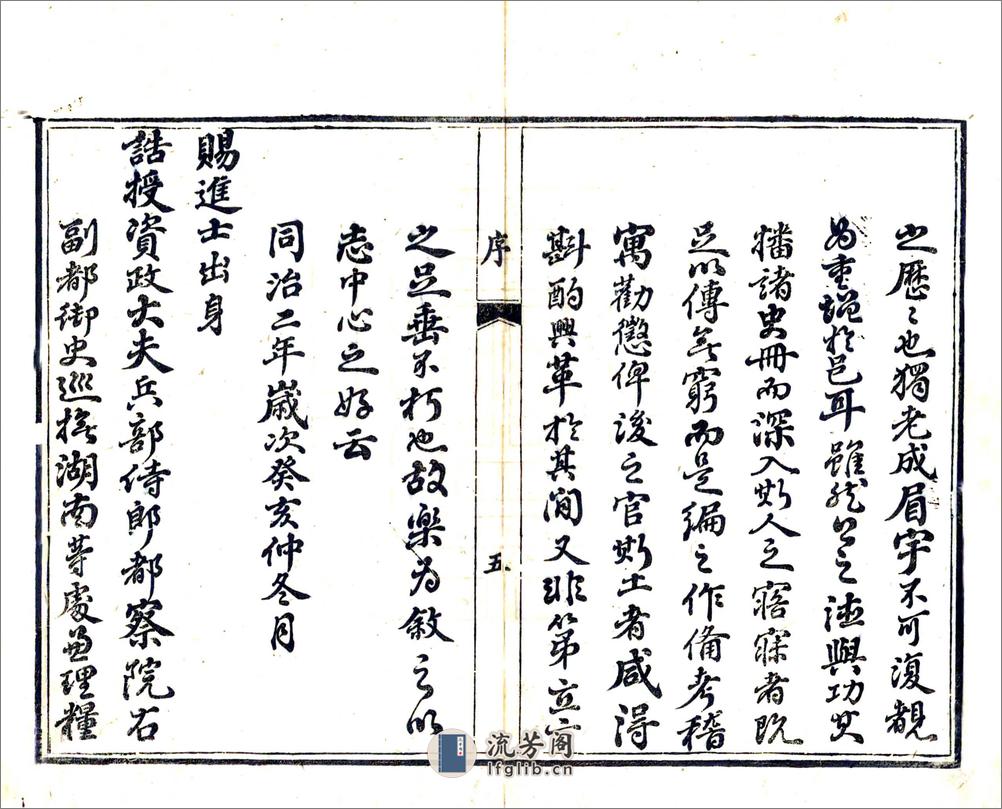 之歷〻也獨老成眉宇不可復覩
為重證於邑耳雖然公之德與功其
播諸史冊而深入斯人之寤寐者既
足以傳無窮而是編之作備考稽
寓勸懲俾後之官斯土者咸得
斟酌興革於其間又非第立言
序
五
之足垂不朽也故樂為敘之以
志中心之好云
同治二年歲次癸亥仲冬月
賜進士出身
誥授資政大夫兵部侍郎都察院右
副都御史巡撫湖南等處兼理糧
流芳阁
lfglib.cn